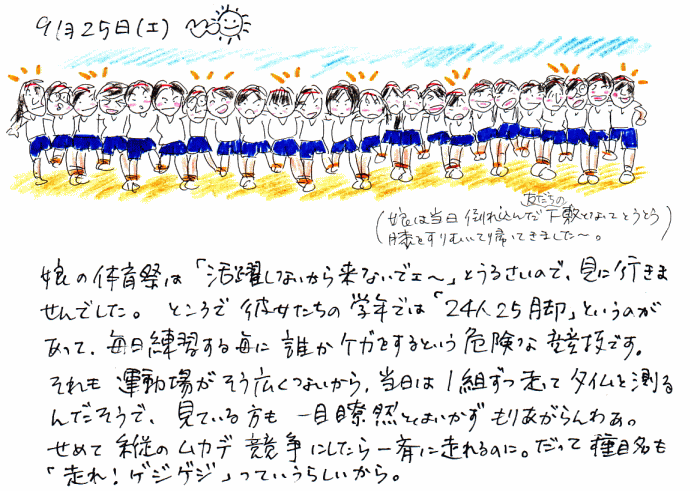 9月25日(土)
(娘は当日倒れ込んだ友だちの下敷となってとうとう
膝をすりむいて帰ってきました〜。)
娘の体育祭は「活躍しないから来ないでェ〜」とうるさいので、見に行きま
せんでした。ところで彼女たちの学年では「24人25脚」というのが
あって、毎日練習する毎に誰かケガをするという危険な競技です。
それも運動場がそう広くないから、当日は1組ずつ走ってタイムを測る
んだそうで、見ている方も一目瞭然とはいかずもりあがらんわぁ。
せめて縦のムカデ競争にしたら一斉に走れるのに。だって種目名も
「走れ!ゲジゲジ」っていうらしいから。